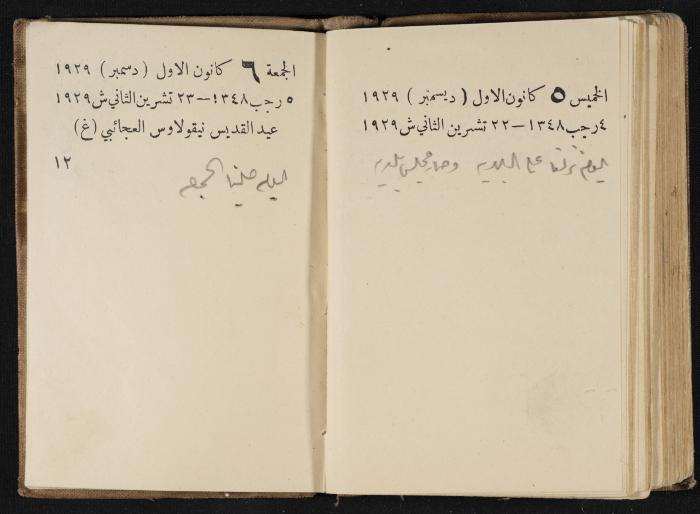 الخميس ٥ كانون الاول ( ديسمبر ) ١٩٢٩
٤ رجب ١٣٤٨ — ٢٢ تشرين الثاني ش ١٩٢٩
اليوم نزلنا على البلديه وصار مجلس بلديه
الجمعة ٦ كانون الاول ( دسمبر ) ١٩٢٩
٥ رجب ١٣٤٨ — ٢٣ تشرين الثاني ش ١٩٢٩
عيد القديس نيقولاوس العجائبي (غ)
١٢
اليوم صلينا الجمعه